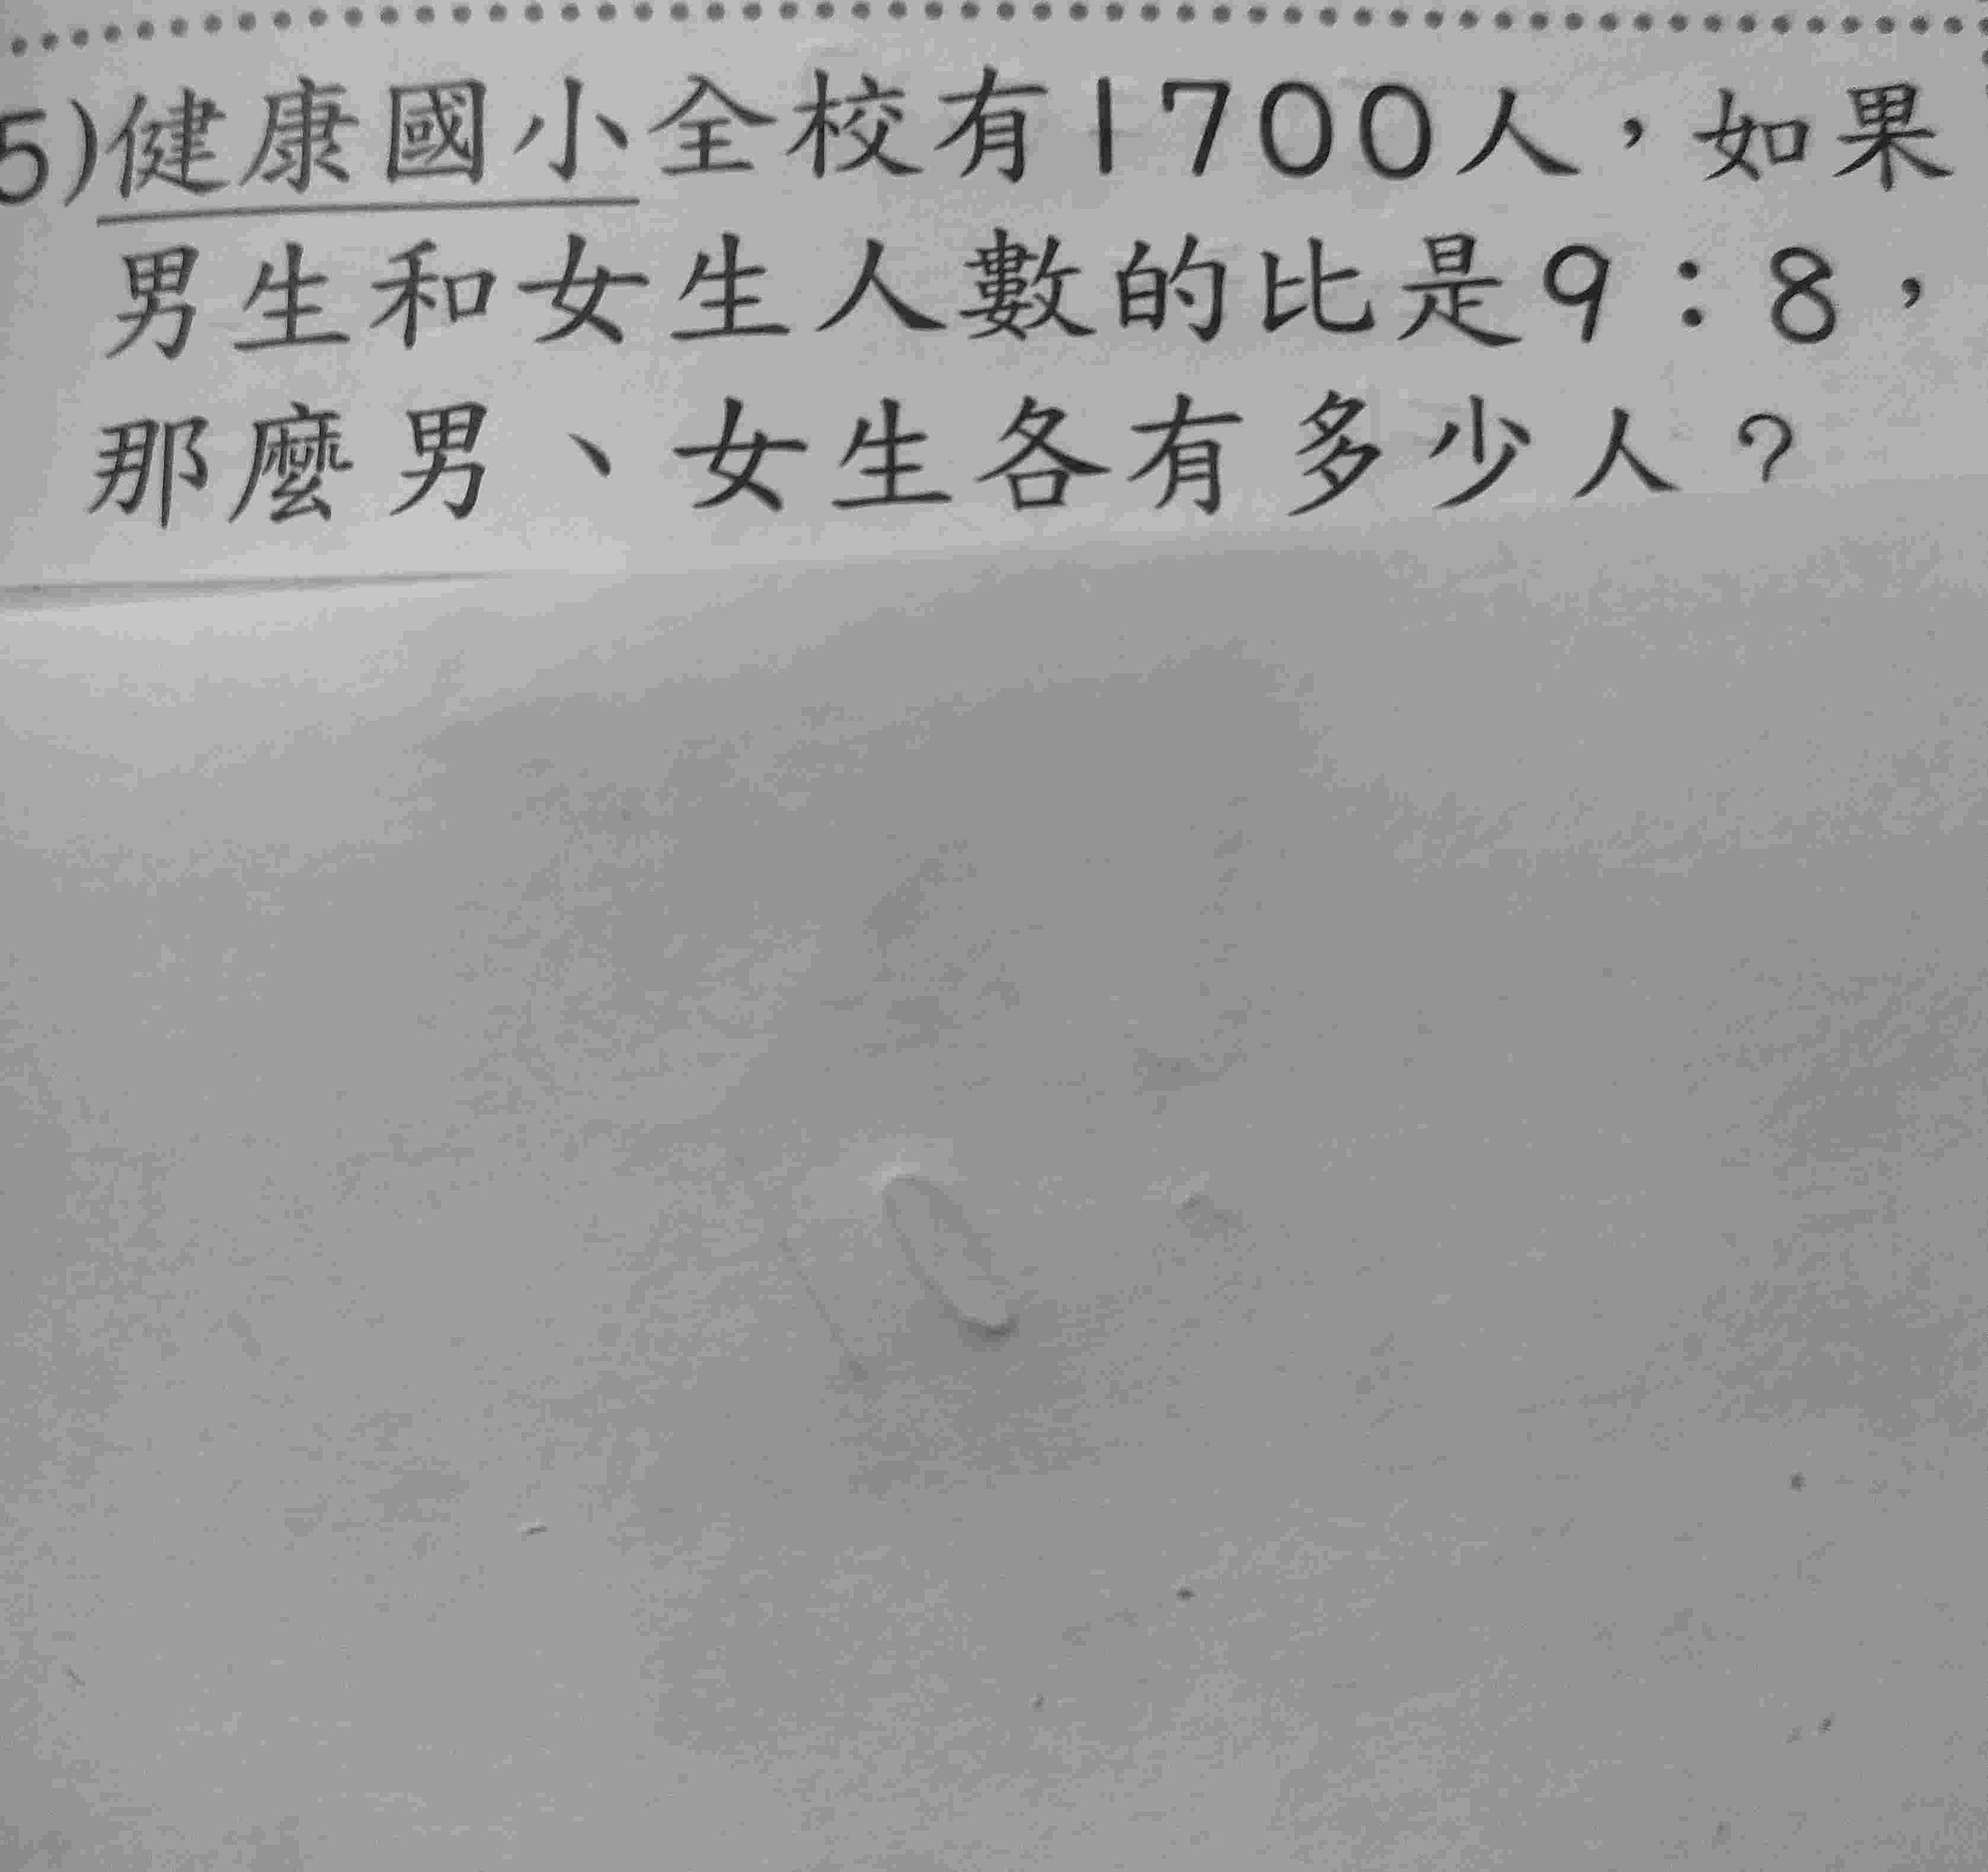 5)健康國小全校有1700人，如果
男生和女生人數的比是9：8，
那麼男、女生各有多少人？